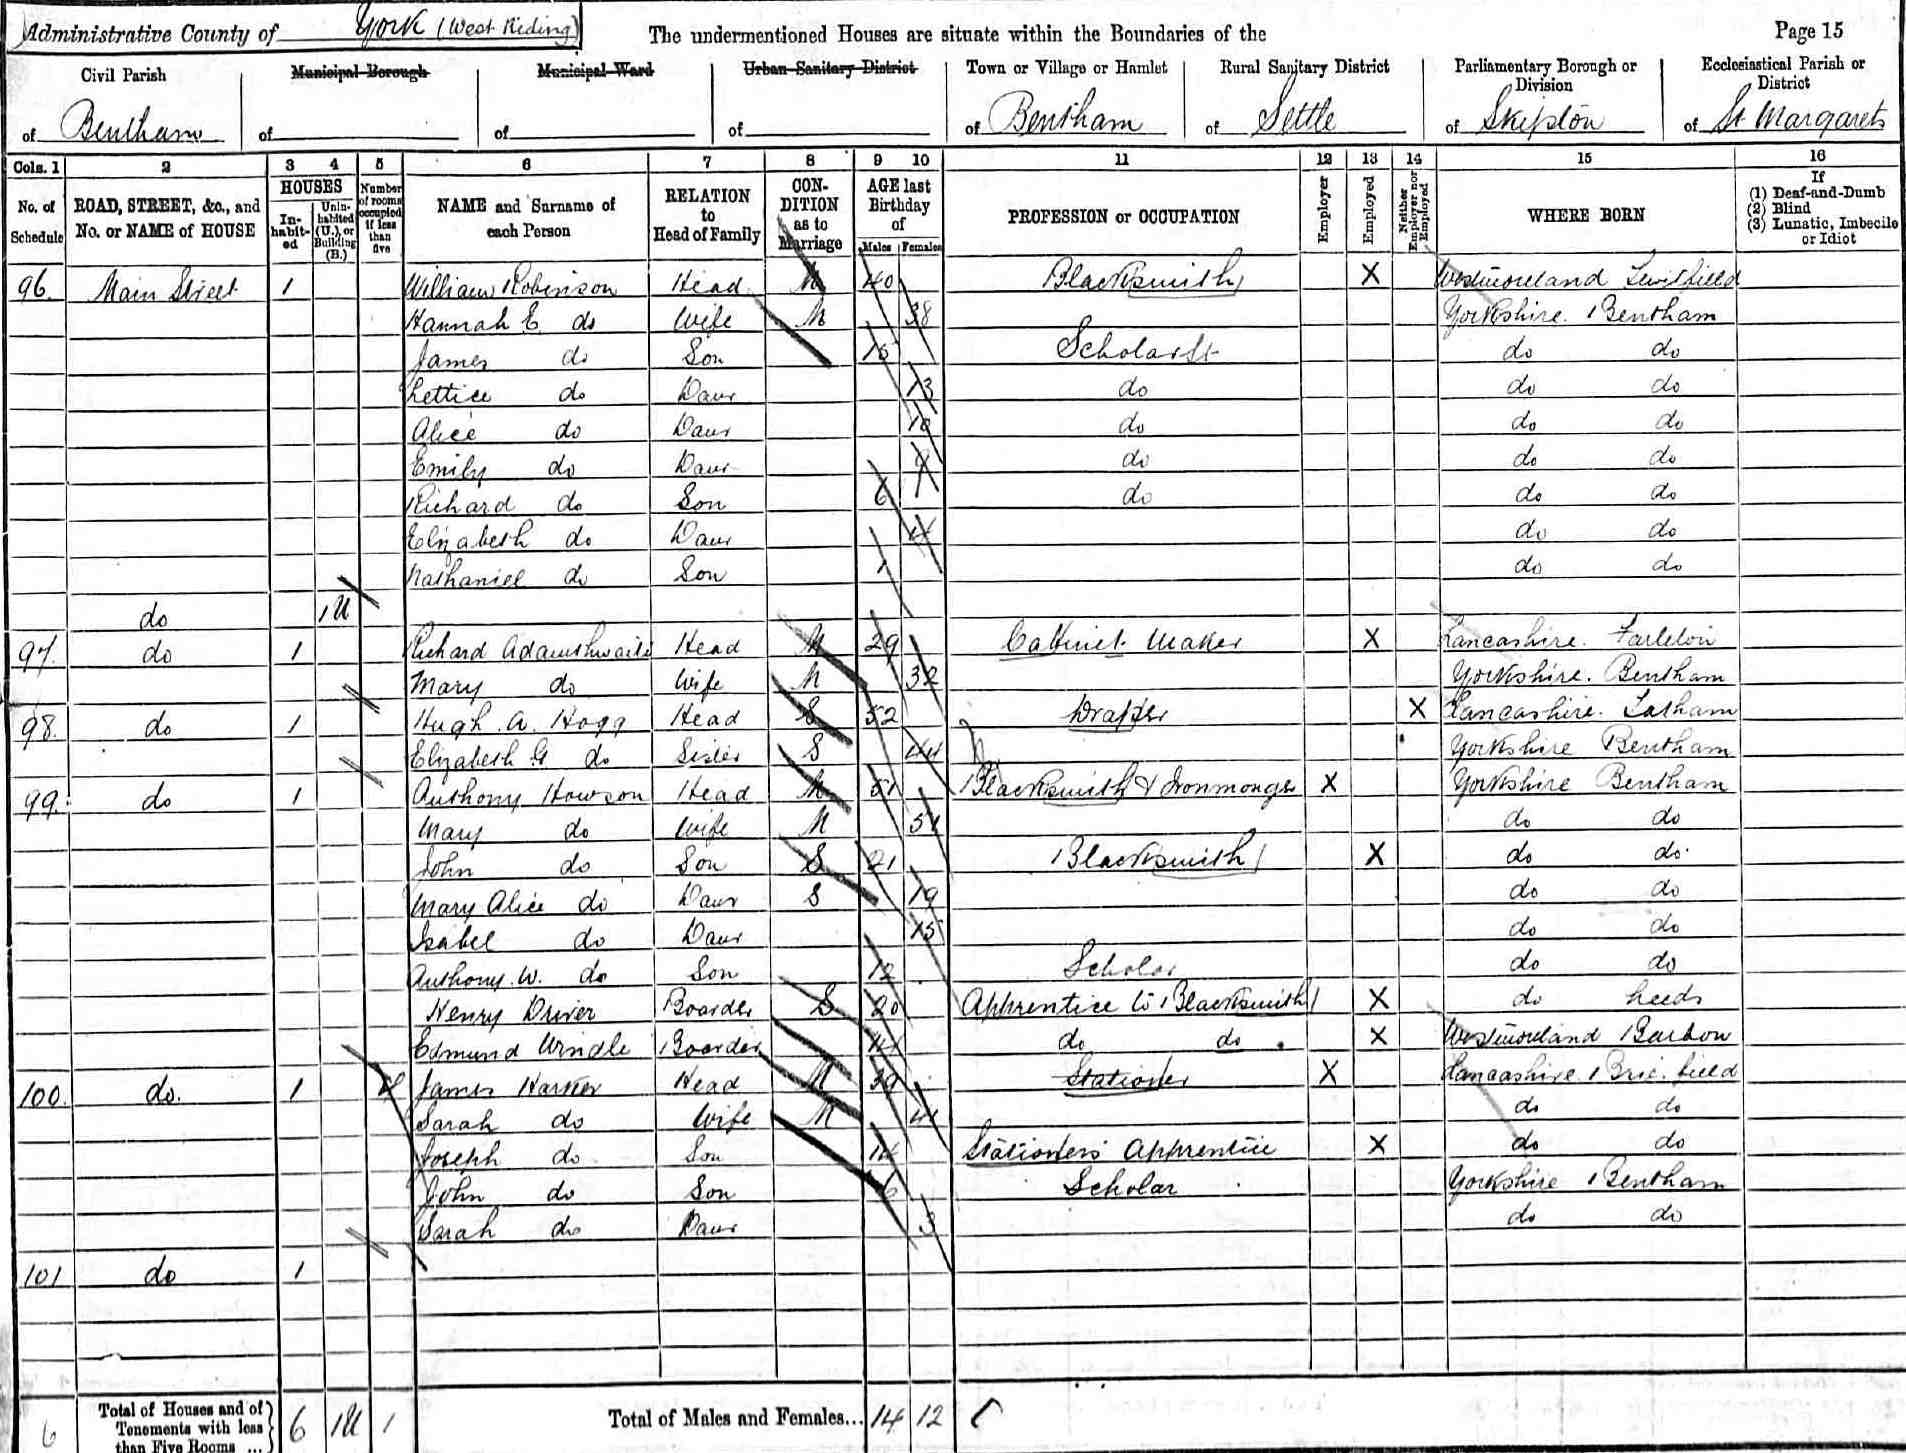 Administrative County of York (West Riding)
The undermentioned Houses are situate within the Boundaries of the
Page 15
Civil Parish of Bentham
Municipal Borough of
Municipal Ward of
Urban Sanitary District of
Town or Village or Hamlet of Bentham
Rural Sanitary District of Settle
Parliamentary Borough or Division of Skipton
Ecclesiastical Parish or District of St Margarets
Cols. 1 2 3 4 5 6 7 8 9 10 11 12 13 14 15 16
No. of Schedule
ROAD, STREET, &c., and No. or NAME of HOUSE
HOUSES
Inhabited
Uninhabited (U.), or Building (B.)
Number of rooms occupied if less than five
NAME and Surname of each Person
RELATION to Head of Family
CONDITION as to Marriage
AGE last Birthday of
Males Females
PROFESSION or OCCUPATION
Employer
Employed
Neither Employer nor Employed
WHERE BORN
If (1) Deaf-and-Dumb (2) Blind (3) Lunatic, Imbecile or Idiot
96. Main Street 1 William Robinson Head M 40 Blacksmith X Westmoreland
Hannah E. do Wife M 38 Yorkshire. Bentham
James do Son 15 Scholar do do
Lettice do Daur 13 do do do
Alice do Daur 10 do do do
Emily do Daur 9 do do do
Richard do Son 6 do do do
Elizabeth do Daur 4 do do
Nathaniel do Son 1 do do
do 1U
97. do 1 Richard Adamthwaite Head M 29 Cabinet Maker X Lancashire. Farleton
Mary do Wife M 32 Yorkshire. Bentham
98. do 1 Hugh A. Hogg Head S 52 Draper X Lancashire. Tatham
Elizabeth G do Sister S 44 Yorkshire Bentham
99. do 1 Anthony Howson Head M 51 Blacksmith & Ironmonger X Yorkshire Bentham
Mary do Wife M 51 do do
John do Son S 21 Blacksmith X do do
Mary Alice do Daur S 19 do do
Isabel do Daur 15 do do
Anthony. W. do Son 12 Scholar do do
Henry Driver Boarder S 20 Apprentice to Blacksmith X do Leeds
Edmund Windle Boarder 14 do do X Westmoreland Barbon
100. do. 1 4 James Harker Head M 39 Stationer X Lancashire. Brierfield
Sarah do Wife M 41 do do
Joseph do Son 14 Stationers Apprentice X do do
John do Son 6 Scholar Yorkshire Bentham
Sarah do Daur 3 do do
101 do 1
6 Total of Houses and of Tenements with less than Five Rooms ... 6 1U 1
Total of Males and Females... 14 12